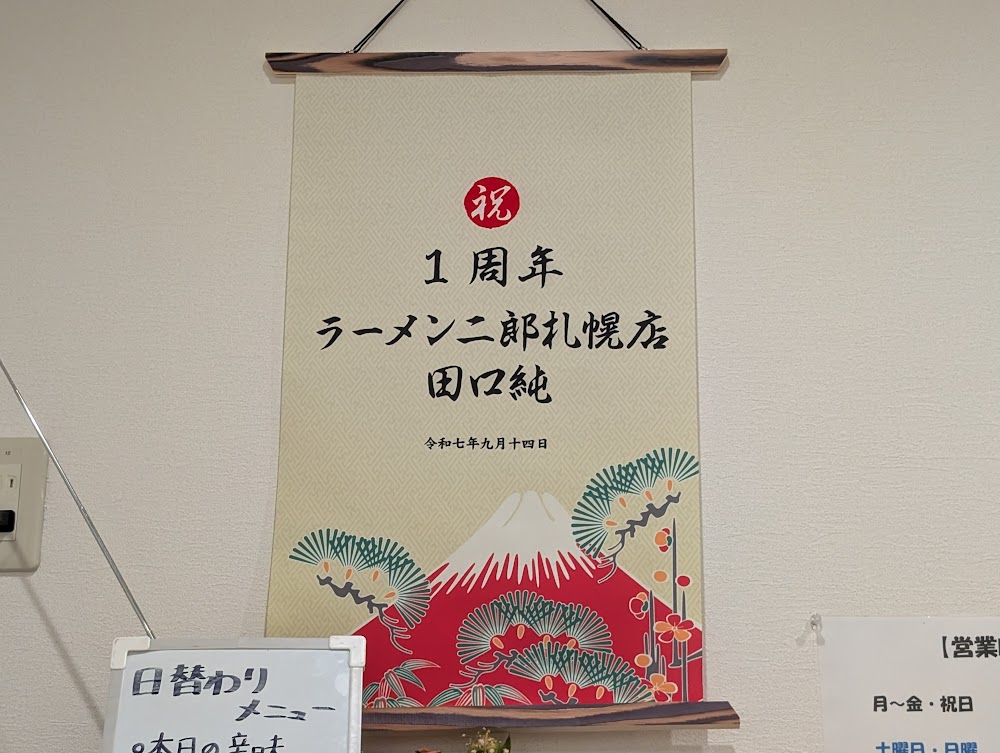 祝
1周年
ラーメン二郎札幌店
田口純
令和七年九月十四日
日替わり
メニュー
本日の辛味
【営業
月～金・祝日
土曜日・日曜